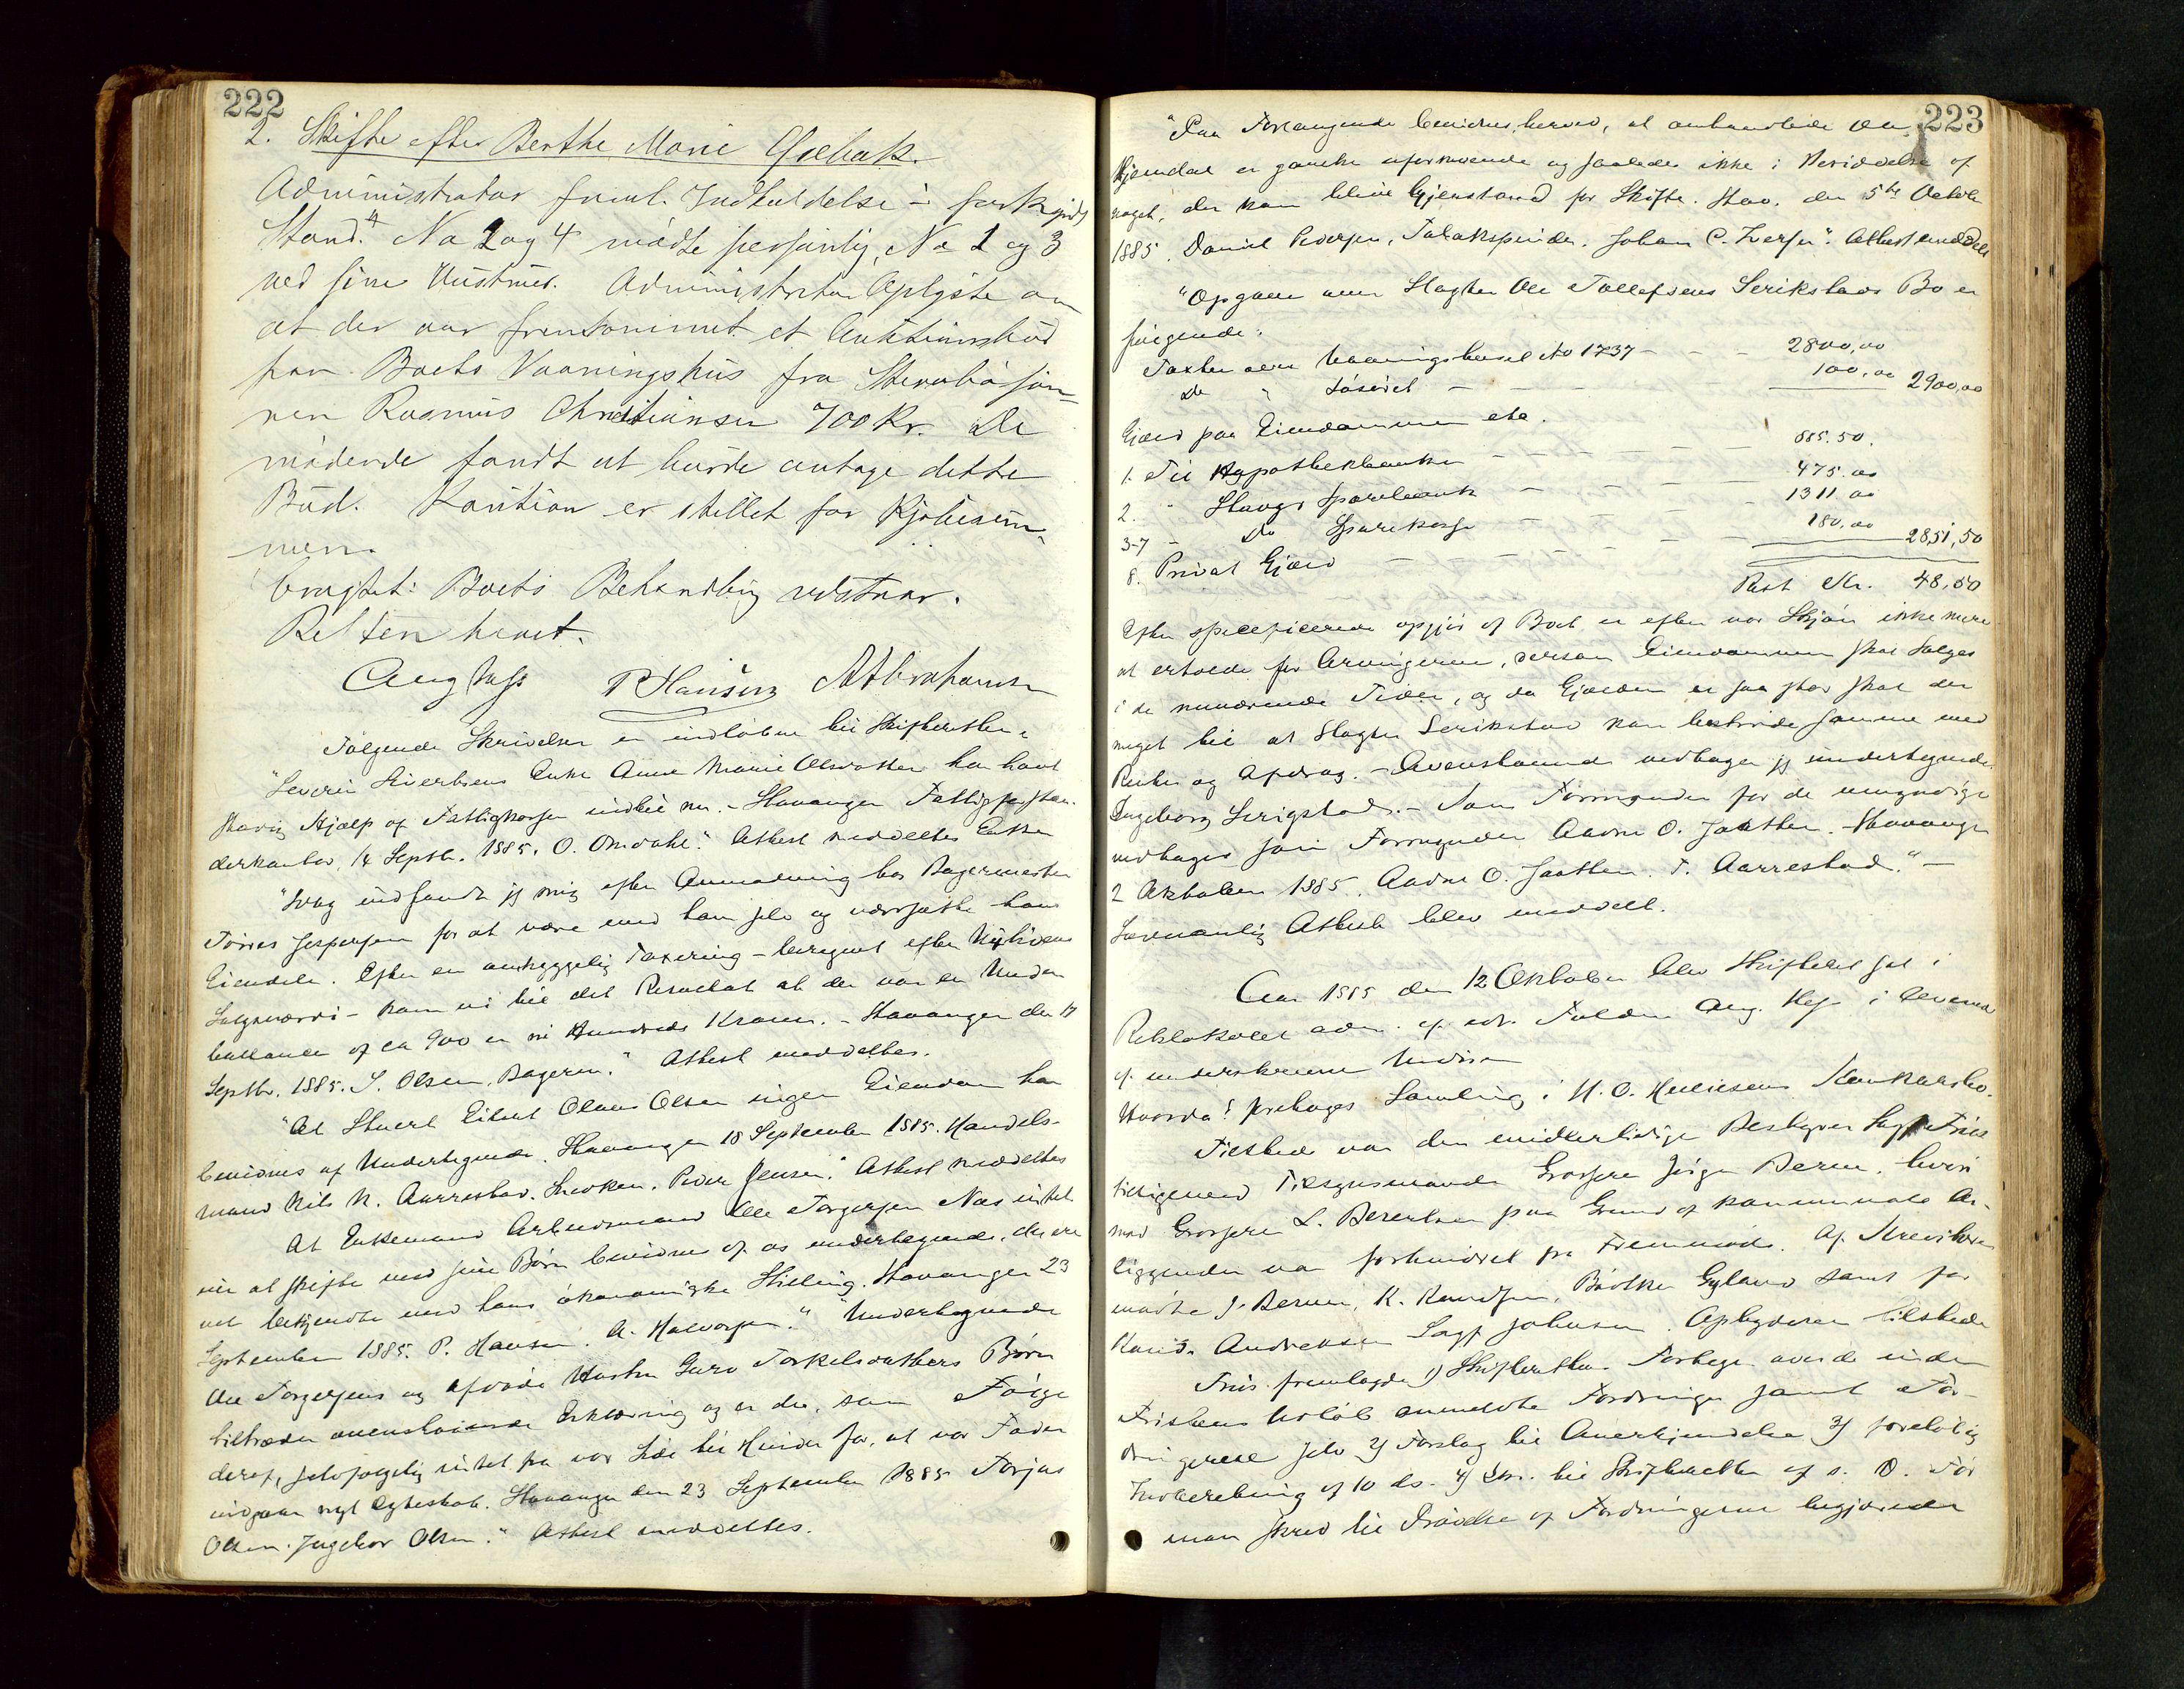 222
2. Skifte efter Berthe Marie
Administrator freml. Indkaldelse i forkyndt
Stand. No 2 og 4 mødte personlig, No 1 og 3
ved sine Hustruer. Administrator Oplyste om
at der var fremkommet et Auktionsbud
paa Boets Vaaningshus fra
Rasmus Christiansen 700 Kr. De
mødende fandt at burde antage dette
Bud. Kaution er stillet for Kjøbesum-
men.
Boets Behandling udstaar.
Retten hævet.
Aug Hess P Hansen A Abrahamsen
Følgende Skrivelser er indløbne til Skifteretten:
"Severin Sivertsens Enke Anne Marie Olsdatter har havt
stadig Hjælp af Fattigkassen indtil nu. - Stavanger Fattigforstan-
derkontor, 14 Septbr. 1885. O. Omdahl." Attest meddeltes Enken
"Idag indfandt jeg mig efter Anmodning hos Bagermester
Tørres Jespersen for at være med ham selv og værdsætte hans
Eiendele. Efter en omhyggelig Taxering - beregnet efter Nutidens
Salgsværdi - kom vi til det Resultat at der var en Under
ballance af ca 900 er ni Hundrede Kroner. - Stavanger den 17
Septbr. 1885. S. Olsen, Bagerm." Attest meddeltes.
"At Stuert Eilert Olaus Olsen ingen Eiendom har
bevidnes af Undertegnede. Stavanger 18 September 1885. Handels-
mand Nils N. Aarrestad. Snedker. Peder Jensen." Attest meddeltes
At Enkemand Arbeidsmand Ole Torgersen Næs intet
eier at skifte med sine Børn bevidnes af os undertegnede, der ere
vel bekjendte med hans økonomiske Stilling. Stavanger 23
September 1885. P. Hansen. A. Halvorsen." "Undertegnede
Ole Torgersens og afdøde Hustru Guro Torkelsdatters Børn
tiltræder ovenstaaende Erklæring og er der, som Følge
deraf, selvfølgelig intet fra vor Side til Hinder for, at vor Fader
indgaar nyt Ægteskab. Stavanger den 23 September 1885 Torjus
Olsen. Ingebor Olsen." Attest meddeltes.
223
"Paa Forlangende bevidnes herved, at
er ganske uformuende og saaledes ikke i Besiddelse af
noget, der kan blive Gjenstand for Skifte. Stav. den 5te October
1885. Daniel Pedersen, Tobakspinder. Johan C. Iversen". Attest meddelt
"Opgave over Slagter Ole Tollefsens Serikstads Bo er
følgende:
Taxten over Vaaningshuset No 1737 - - - 2800,00
Do " Løsøret - - - 100,00 2900,00
Gjæld paa Eiendommen etc.
1. Til Hypothekbanken - - - 885.50.
2. " Stavgr Sparebank - - - 475.00
3-7 - Do Sparekasse - - - 1311.00
8. Privat Gjæld - - - 180,00 2851,50
Rest Kr. 48,50
Efter specificerede opgjør af Boet er efter vor Skjøn ikke mere
at erholde for Arvingerne, dersom Eiendommen skal Sælges
i de nuværende Tider, og da Gjælden er saa stor skal der
meget til at Slagter Serikstad kan bestride samme med
Renter og Afdrag. - Ovenstaaende vedtager jeg undertegnede
Ingeborg Serigstad. - Som Formynder for de umyndige
vedtages som Formynder Aadne O. Jaatten. - Stavanger
2 Oktober 1885. Aadne O. Jaatten. T. Aarrestad." -
Sædvanlig Attest blev meddelt.
Aar 1885 den 12 Oktober blev Skifteret sat i
Retslokalet adm. af edv. Fuldm. Aug. Hess i Overvær
af underskrevne Vidner
Hvorda! foretoges Samling i H. O. Konkursbo.
Tilstede var den midlertidige Bestyrer Sagf. Friis
tilligemed Tilsynsmanden Grosserer Jørgen Berner, hvori
mod Grosserer L. Berentsen paa Grund af kommunale An-
liggender var forhindret fra Fremmøde. Af Kreditorer
mødte J. Berner, K. Knudsen, Gyland samt for
Andreasen Sagf. Johnsen. Opbyderen tilstede
Friis fremlagde 1) Skifterettens Fortegn. over de inden
Fristens Udløb anmeldte Fordringer samt For-
dringerne selv 2) Forslag til Anerkjendelse 3) foreløbig
Indberetning af 10 ds. 4) Skr. til Skifteretten af s. D. Før
man skred til Prøvelse af Fordringerne begjærede